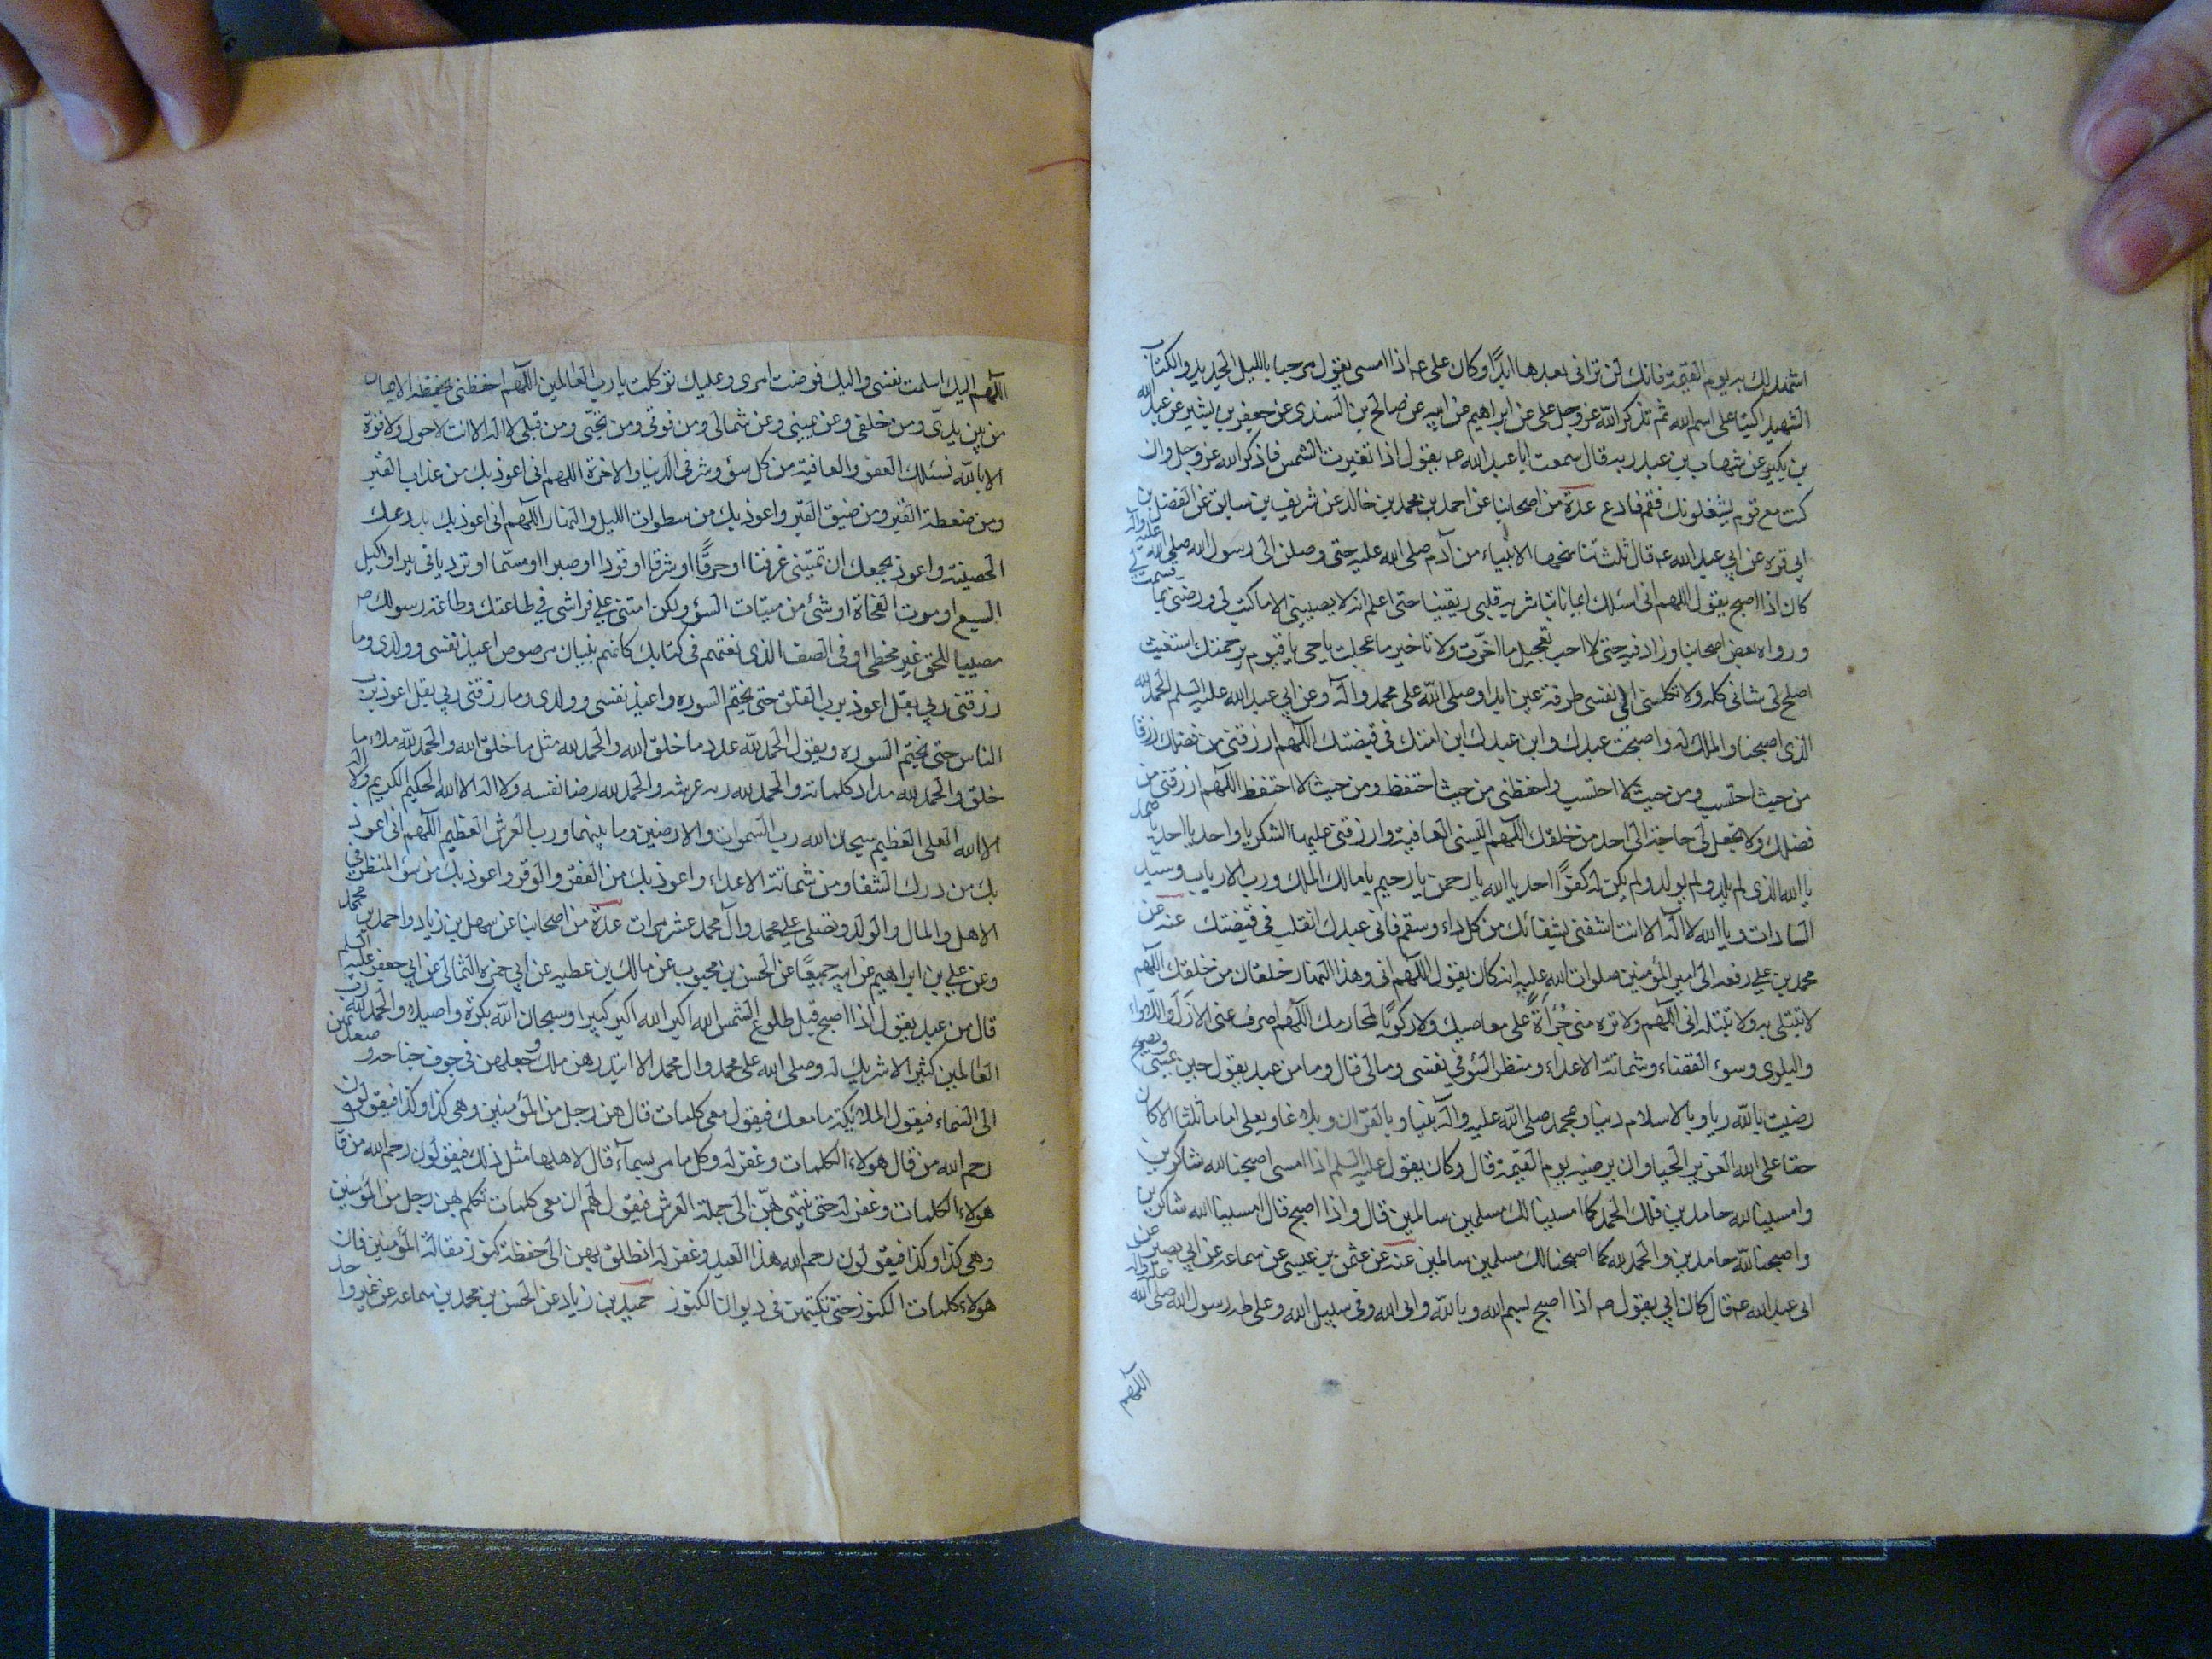 اشهد لك به يوم القيمة فانك لن ترانى بعدها ابدًا وكان على عه اذا امسى يقول مرحبا بالليل الجديد والكاتب
الشهيد اكتبا على اسم الله ثم تذكر الله عز وجل على عن ابراهيم عن ابيه عن صالح بن السندى عن جعفر بن بشير عن عبد الله
بن بكير عن شهاب بن عبد ربه قال سمعت ابا عبد الله عه يقول اذا تغيرت الشمس فاذكر الله عز وجل وان
كنت مع قوم يشغلونك فقم فادع عدة من اصحابنا عن احمد بن محمد بن خالد عن شريف بن سابق عن الفضل بن
ابى قره عن ابى عبد الله عه قال ثلث تناسخها الانبياء من آدم صلى الله عليه حتى وصلن الى رسول الله صلى الله عليه وآله
كان اذا اصبح يقول اللهم انى اسئلك ايمانا تباشر به قلبى ويقينا حتى اعلم انه لا يصيبنى الا ما كتبت لى ورضنى بما قسمت لى
ورواه بعض اصحابنا وزاد فيه حتى لا احب تعجيل ما اخّرت ولا تاخير ما عجلت يا حى يا قيوم برحمتك استغيث
اصلح لى شانى كله ولا تكلنى الى نفسى طرفة عين ابدا وصلى الله على محمد وآله وعن ابى عبد الله عليه السلم الحمد لله
الذى اصبحنا والملك له واصبحت عبدك وابن عبدك ابن امتك فى قبضتك اللهم ارزقنى من فضلك رزقا
من حيث احتسب ومن حيث لا احتسب واحفظنى من حيث احتفظ ومن حيث لا احتفظ اللهم ارزقنى من
فضلك ولا تجعل لى حاجة الى احد من خلقك اللهم البسنى العافية وارزقنى عليها الشكر يا واحد يا احد يا صمد
يا الله الذى لم يلد ولم يولد ولم يكن له كفوًا احد يا الله يا رحمن يا رحيم يا مالك الملك ورب الارباب وسيد
السادات ويا الله لا اله الا انت اشفنى بشفائك من كل داء وسقم فانى عبدك اتقلب فى قبضتك عنه عن
محمد بن على رفعه الى امير المؤمنين صلوات الله عليه انه كان يقول اللهم انى وهذا النهار خلقان من خلقك اللهم
لا تبتلى به ولا تبتله بى اللهم ولا تره منى جُرأَةً على معاصيك ولا ركوبًا لمحارمك اللهم اصرف عنى الازَل واللأواء
والبلوى وسوء القضاء وشماتة الاعداء ومنظر السّوء فى نفسى ومالى قال وما من عبد يقول حين يمسى ويصبح
رضيت بالله ربا وبالاسلام دينا وبمحمد صلى الله عليه وآله نبيا وبالقرآن وبلاغا وبعلى اماما ثلثا الا كان
حقا على الله العزيز الجبار ان يرضيه يوم القيمة قال وكان يقول عليه السلم اذا امسى اصبحنا لله شاكرين
وامسينا لله حامدين فلك الحمد كما امسينا لك مسلمين سالمين قال واذا اصبح قال امسينا لله شاكرين
واصبحنا لله حامدين والحمد لله كما اصبحنا لك مسلمين سالمين عنه عن عثمن بن عيسى عن سماعه عن ابى بصير عن
ابى عبد الله عه قال كان ابى يقول عه اذا اصبح بسم الله وبالله والى الله وفى سبيل الله وعلى مله رسول الله صلى الله عليه وآله
اللهم
اللهم اليك اسلمت نفسى واليك فوضت امرى وعليك توكلت يا رب العالمين اللهم احفظنى بحفظ الايمان
من بين يدىّ ومن خلفى وعن يمينى وعن شمالى ومن فوقى ومن تحتى ومن قبلى لا اله الا انت لا حول ولا قوة
الا بالله نسئلك العفو والعافية من كل سوء وشر فى الدنيا والاخرة اللهم انى اعوذ بك من عذاب القبر
ومن ضغطة القبر ومن ضيق القبر واعوذ بك من سطوات الليل والنهار اللهم انى اعوذ بك بدرعك
الحصينة واعوذ بجمعك ان تميتنى غرقا او حرقًا او شرقا او قودا او صبرا او مسمّا او ترديا فى بير او اكيل
السبع او موت الفجاة او شئ من ميتات السؤ ولكن امتنى على فراشى فى طاعتك وطاعة رسولك ص
مصيبا للحق غير مخطى او فى الصف الذى نعتهم فى كتابك كانهم بنيان مرصوص اعيذ نفسى وولدى وما
رزقنى ربى بقل اعوذ برب الفلق حتى يختم السوره واعيذ نفسى وولدى وما رزقنى ربى بقل اعوذ برب
الناس حتى يختم السوره ويقول الحمد لله عدد ما خلق الله والحمد لله مثل ما خلق الله والحمد لله ملاء ما
خلق والحمد لله مداد كلماته والحمد لله زنه عرشه والحمد لله رضا نفسه ولا اله الا الله الحكيم الكريم ولا اله
الا الله العلى العظيم سبحان الله رب السموات والارضين وما بينهما ورب العرش العظيم اللهم انى اعوذ
بك من درك الشقا ومن شماتة الاعداء واعوذ بك من الفقر والوقر واعوذ بك من سؤ المنظر فى
الاهل والمال والولد وتصلى على محمد وآل محمد عشر مرات عدة من اصحابنا عن سهل بن زياد واحمد بن محمد
وعن على بن ابراهيم عن ابيه جميعًا عن الحسن بن محبوب عن مالك بن عطيه عن ابى حمزه الثمالى عن ابى جعفر عليه السلم
قال من عبد يقول اذا اصبح قبل طلوع الشمس الله اكبر الله اكبر كبيرا وسبحان الله بكرة واصيلا والحمد لله رب
العالمين كثيرا لا شريك له وصلى الله على محمد وال محمد الا ابتدرهن ملك وجعلهن فى جوف جناحه وصعد بهن
الى السماء فيقول الملائكة ما معك فيقول معى كلمات قال هن رجل من المؤمنين وهى كذا وكذا فيقولون
رحم الله من قال هولاء الكلمات وغفر له وكل ما مر بسمآء قال لاهلها مثل ذلك فيقولون رحم الله من قال
هولاء الكلمات وغفر له حتى ينتهى بهنّ الى حملة العرش فيقول لهم ان معى كلمات تكلم بهن رجل من المؤمنين
وهى كذا وكذا فيقولون رحم الله هذا العبد وغفر له انطلق بهن الى حفظة كنوز مقالة المؤمنين فان
هولاء كلمات الكنوز حتى تكتبهن فى ديوان الكنوز حميد بن زياد عن الحسن بن محمد بن سماعه عن غير واحد